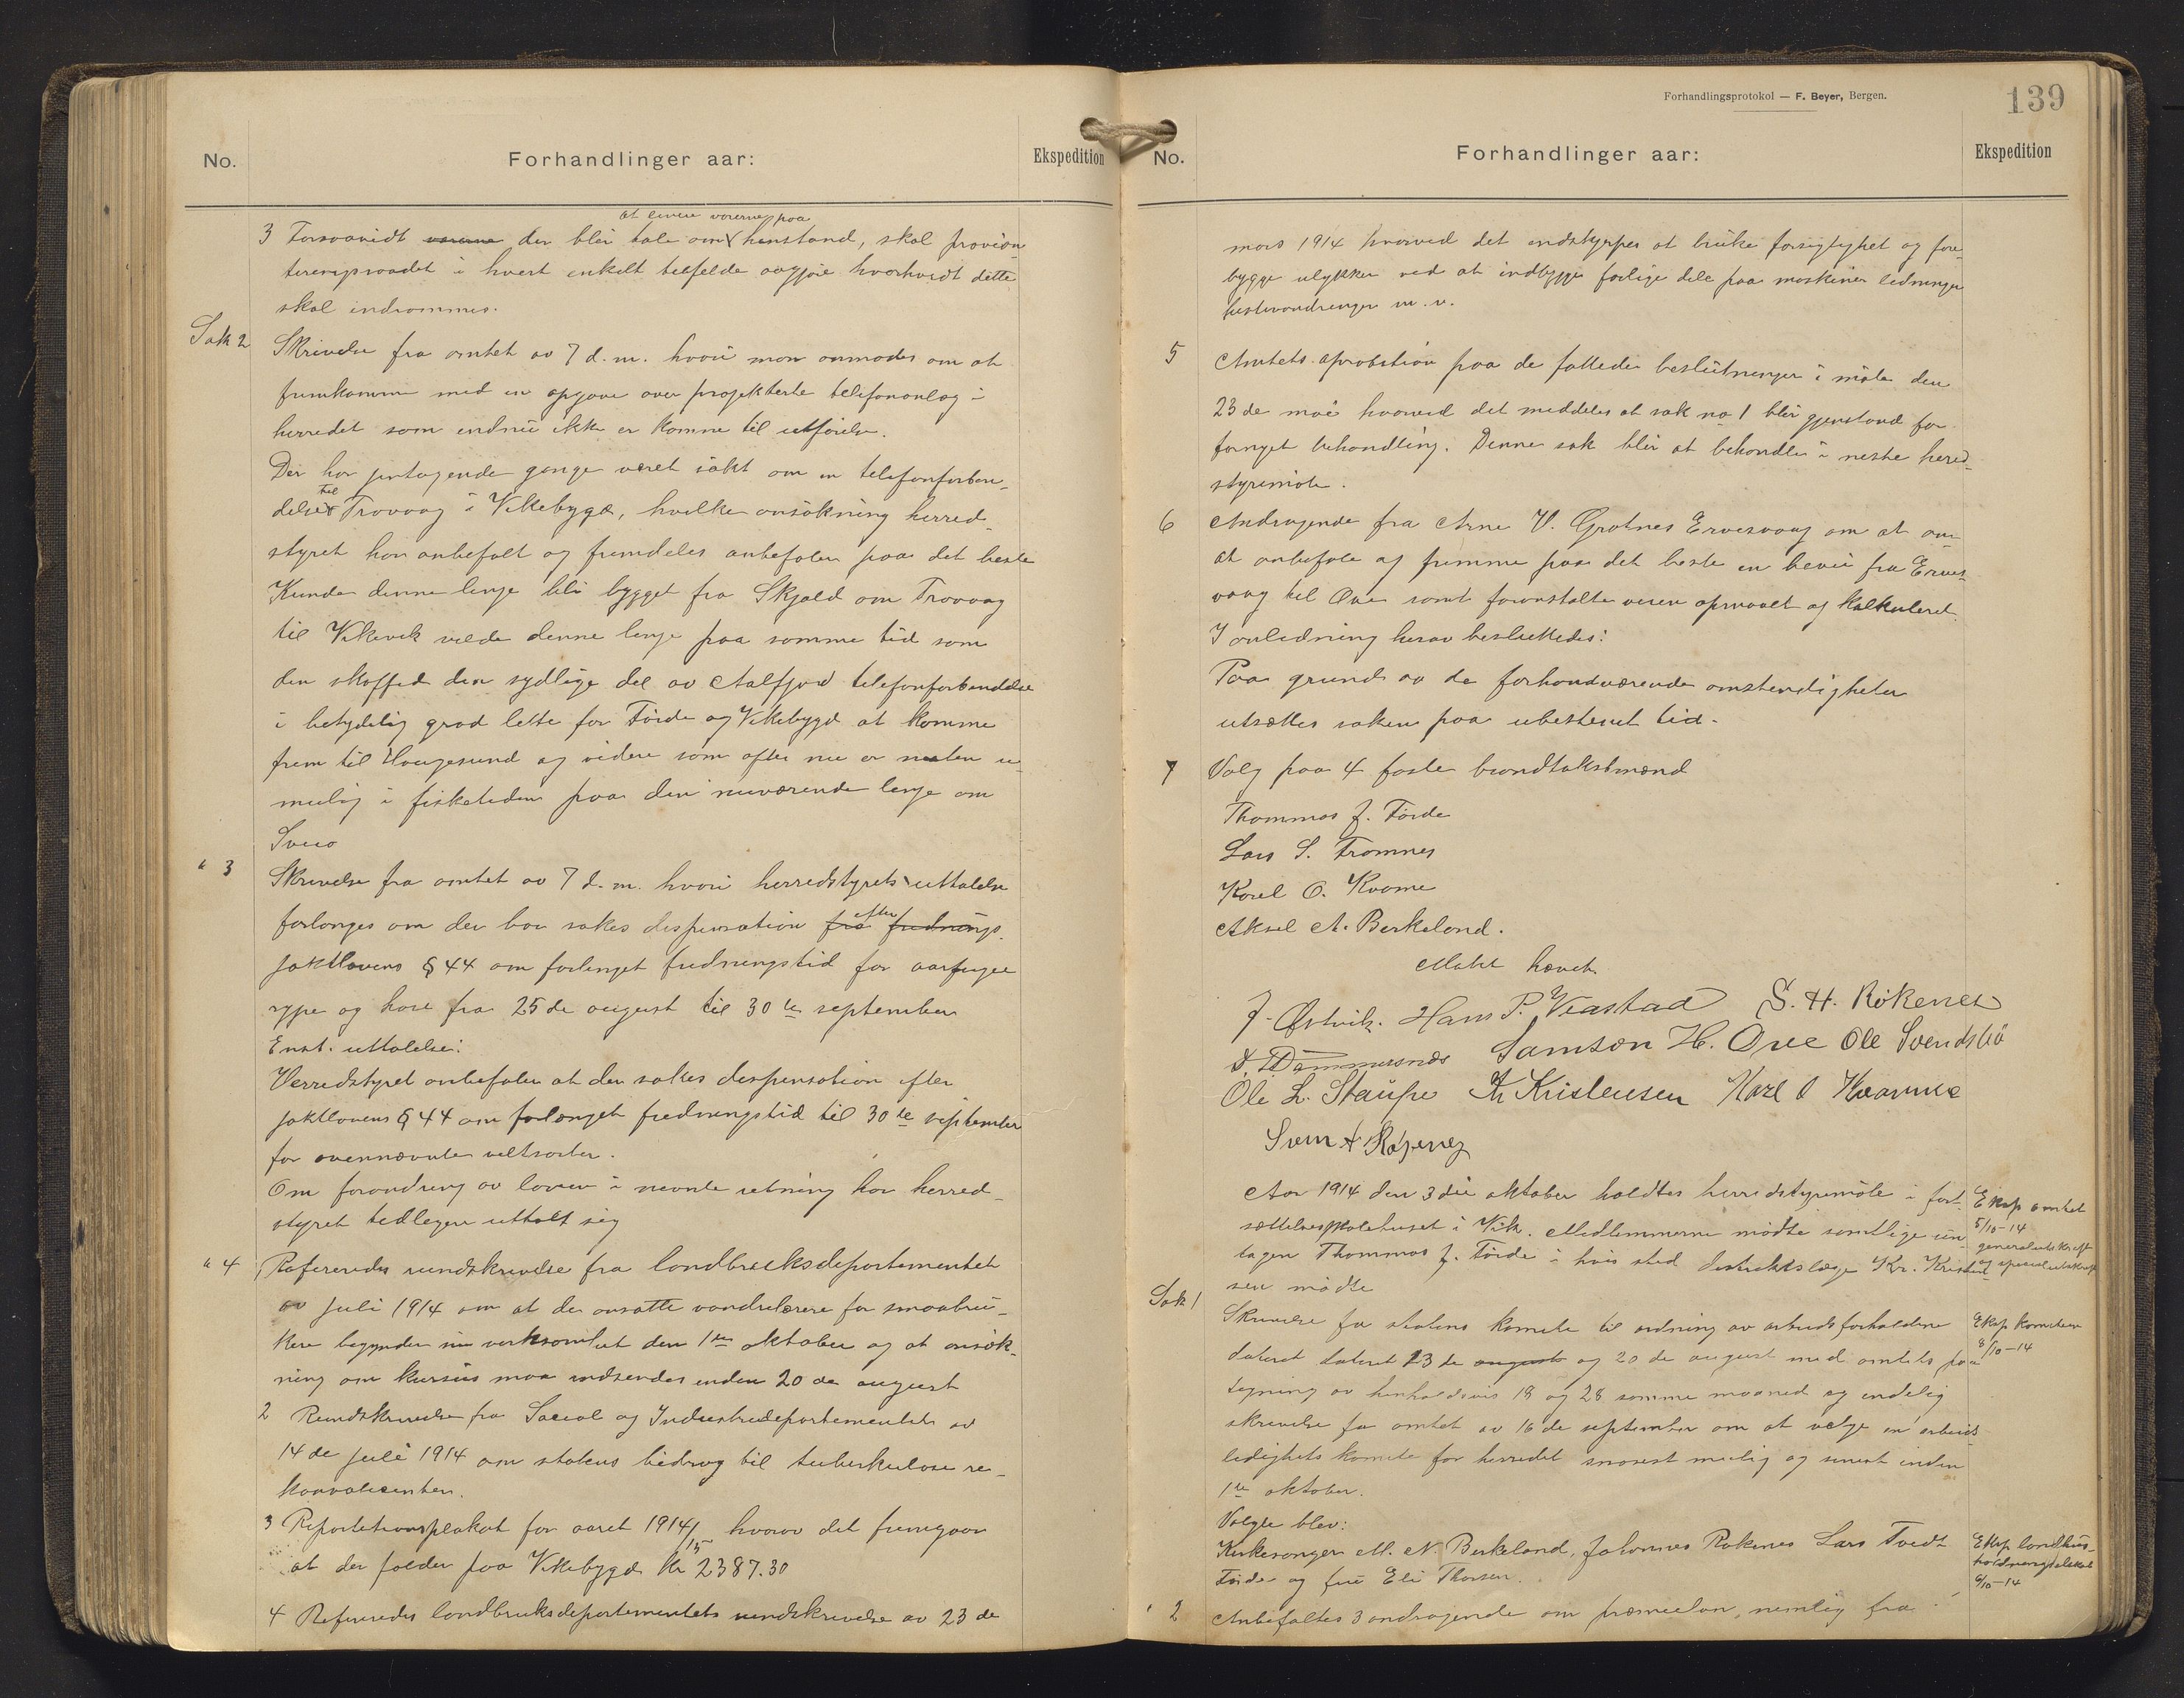 No. Forhandlinger aar: Ekspedition
at levere varerne paa
3 Forsaavidt varerne der blir tale om henstand, skal provian
teringsraadet i hvert enkelt tilfelde avgjøre hvorhvidt dette
skal indrømmes.
Sak 2 Skrivelse fra amtet av 7 d.m. hvori man anmodes om at
fremkomme med en opgave over projekterte telefonanlæg i
herredet som endnu ikke er komne til utførelse.
Der har gjentagende gange været søkt om en telefonforbin-
til
delse Trovaag i Vikebygd, hvilke ansøkning herred-
styret har anbefalt og fremdeles anbefaler paa det beste
Kunde denne linje bli bygget fra Skjold om Trovaag
til Vikevik vilde denne linje paa samme tid som
den skaffed den sydlige del av Aalfjord telefonforbindelse
i betydelig grad lette for Førde og Vikebygd at komme
frem til Haugesund og videre som ofte nu er næsten u-
mulig i fisketiden paa den nuværende linje om
Sveio
" 3 Skrivelse fra amtet av 7 d.m. hvori herredstyrets uttalelse
forlanges om der bør søkes dispensation fra efter frednings
jaktlovens § 44 om forlenget fredningstid for aarfugl
rype og hare fra 25de august til 30te september
Enst. uttalelse:
Herredstyret anbefaler at der søkes dispensation efter
jaktlovens § 44 om forlænget fredningstid til 30te september
for ovennævnte viltsorter.
Om forandring av loven i nævnte retning har herred-
styret tidligere uttalt sig
" 4 1 Refereredes rundskrivelse fra landbruksdepartementet
av juli 1914 om at de ansatte vandrelærere for smaabru-
kere begynder sin verksomhet den 1ste oktober og at ansøk-
ning om kursus maa indsendes inden 20de august
2 Rundskrivelse fra Social og Industridepartementet av
14de juli 1914 om statens bidrag til tuberkulose re-
konvalesenter.
3 Repartitionsplakat for aaret 1914/15 hvorav det fremgaar
at der falder paa Vikebygd kr 2387.30
4 Refereredes landbruksdepartementets rundskrivelse av 23de
Forhandlingsprotokol — F. Beyer, Bergen.
139
No. Forhandlinger aar: Ekspedition
mars 1914 hvorved det indskjerpes at bruke forsigtighet og fore-
bygge ulykker ved at indbygge farlige dele paa maskiner ledninger
hestevandringer m.v.
5 Amtets aprobation paa de fattede beslutninger i møte den
23de mai hvorved det meddeles at sak no 1 blir gjenstand for
fornyet behandling. Denne sak blir at behandle i neste hered-
styremøte.
6 Andragende fra Arne V. Grotnes Ervesvaag om at
at anbefale og fremme paa det beste en bevei fra Erves
vaag til Øve samt foranstalte veien opmaalt og kalkuleret.
I anledning herav besluttedes:
Paa grund av de forhondværende omstendigheter
utsættes saken paa ubestemt tid.
7 Valg paa 4 faste brandtakstmænd
Thommas J. Førde
Lars S. Tromnes
Karel O. Kvame
Aksel A. Berkeland.
Møtet hævet
J. Østvik. Hans P. Veastad S. H. Røkenes
Samson H. Øve Ole Svendsbø
Ole L. Staupe Kr Kristensen Karl O Kvamme
Svein Røkenes
Aar 1914 den 3die oktober holdtes herredstyremøte i fort-
sættelsesskolehuset i Vik. Medlemmerne mødte samtlige und-
tagen Thommas J. Førde i hvis sted distriktslæge Kr. Kristen-
sen mødte
Eksp amtet
5/10-14
generalutskrift
og specialutskrift
Sak 1 Skrivelse fra statens komite til ordning av arbeidsforholdene
dateret dateret 13de august og 20de august med amtets paa
tegning av henholdsvis 18 og 28 samme maaned og endelig
skrivelse fra amtet av 16de september om at vælge en arbeids-
ledighets komite for herredet snarest mulig og senest inden
1ste oktober.
Eksp komiteen
8/10-14
Valgte blev:
Kirkesanger M. N. Berkeland, Johannes Røkenes Lars Tvedt
Førde og fru Eli Thorsen.
" 2 Anbefaltes 3 andragende om præmieløn, nemlig fra
Eksp landhus-
holdningselskab
6/10-14